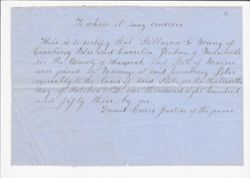 To whom it may concern
This is to certify that Stillman G Young of
Cranberry Isles and Lucretia
in the County of Hancock and State of Maine
were joined in Marriage at said Cranberry Isles
agreeably to the Laws of said State on the thirteenth
day of October A.D. one thousand eight hundred
and fifty three by me
justice of the peace